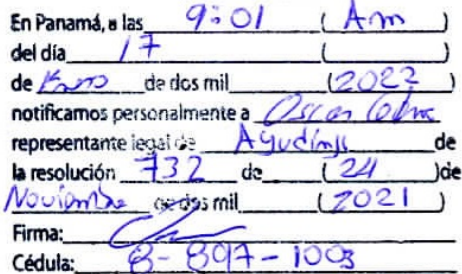 En Panamá, a las 9:01 (Am)
del día 17
de Enero de dos mil (2022)
notificamos personalmente a Oscar
representante legal de Ayudinga de
la resolución 732 de (24) de
Noviembre de dos mil (2021)
Firma:
Cédula: 8-897-1003